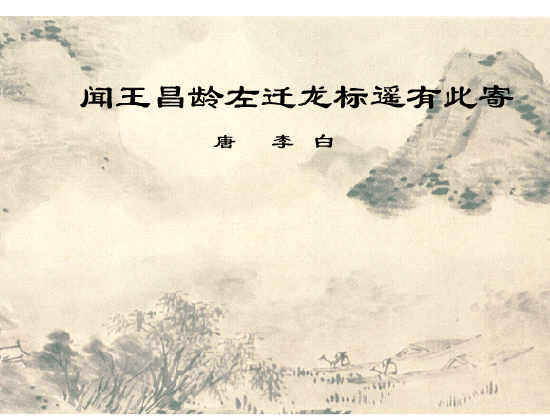 闻王昌龄左迁龙标遥有此寄
唐 李 白